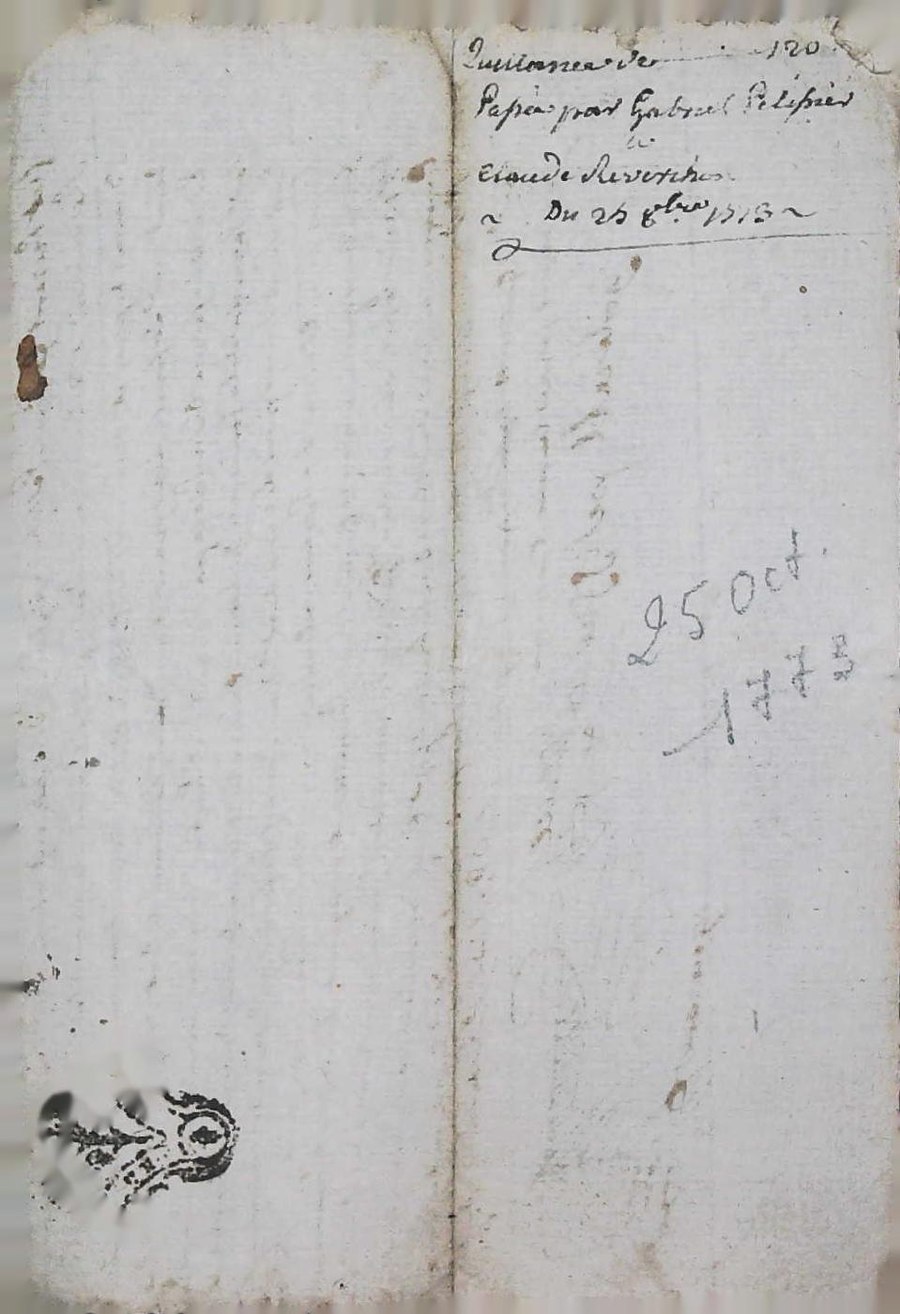 Quittance de 120
Passée par Gabriel Pelissier
a
Claude Reverchon
Du 25 8bre 1773
25 Oct.
1773